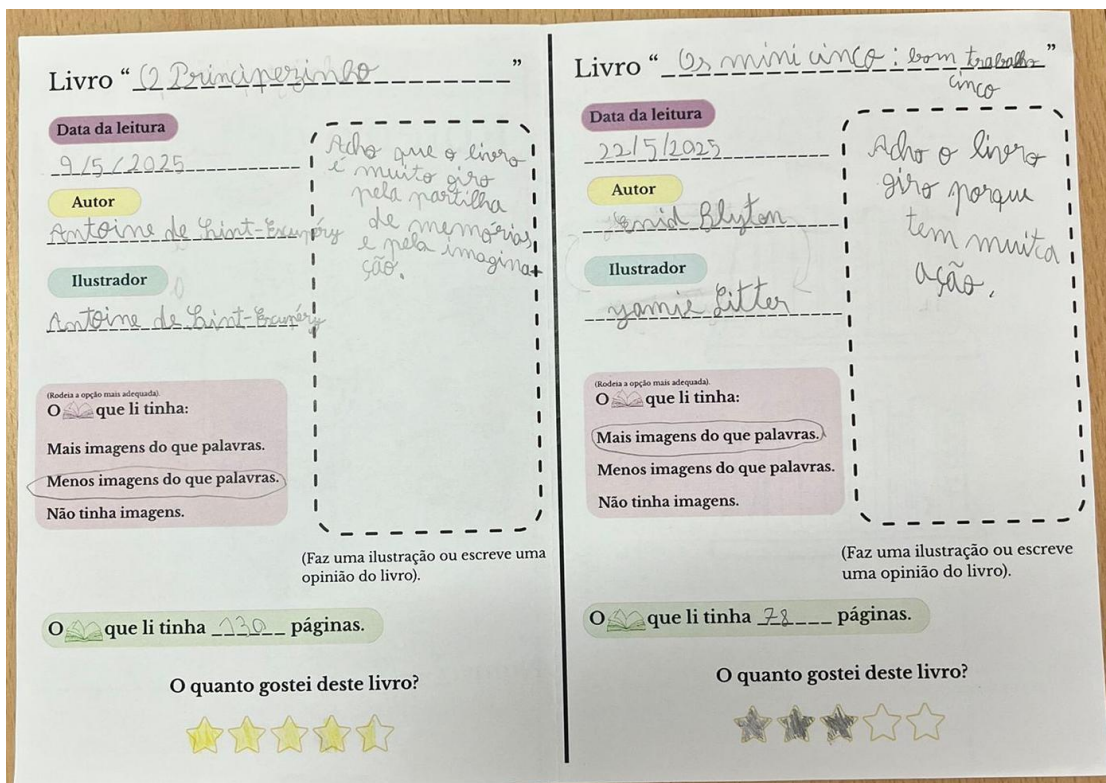 Livro “O Principezinho”
Data da leitura
9/5/2025
Autor
Antoine de Saint-Exupéry
Ilustrador
Antoine de Saint-Exupéry
Acho que o livro
é muito giro
pela partilha
de memórias
e pela imagina-
ção.
(Rodeia a opção mais adequada).
O que li tinha:
Mais imagens do que palavras.
Menos imagens do que palavras.
Não tinha imagens.
(Faz uma ilustração ou escreve uma
opinião do livro).
O que li tinha 130 páginas.
O quanto gostei deste livro?
Livro “Os mini cinco: bom trabalho”
cinco
Data da leitura
22/5/2025
Autor
Enid Blyton
Ilustrador
yamie Litter
Acho o livro
giro porque
tem muita
ação.
(Rodeia a opção mais adequada).
O que li tinha:
Mais imagens do que palavras.
Menos imagens do que palavras.
Não tinha imagens.
(Faz uma ilustração ou escreve
uma opinião do livro).
O que li tinha 78 páginas.
O quanto gostei deste livro?